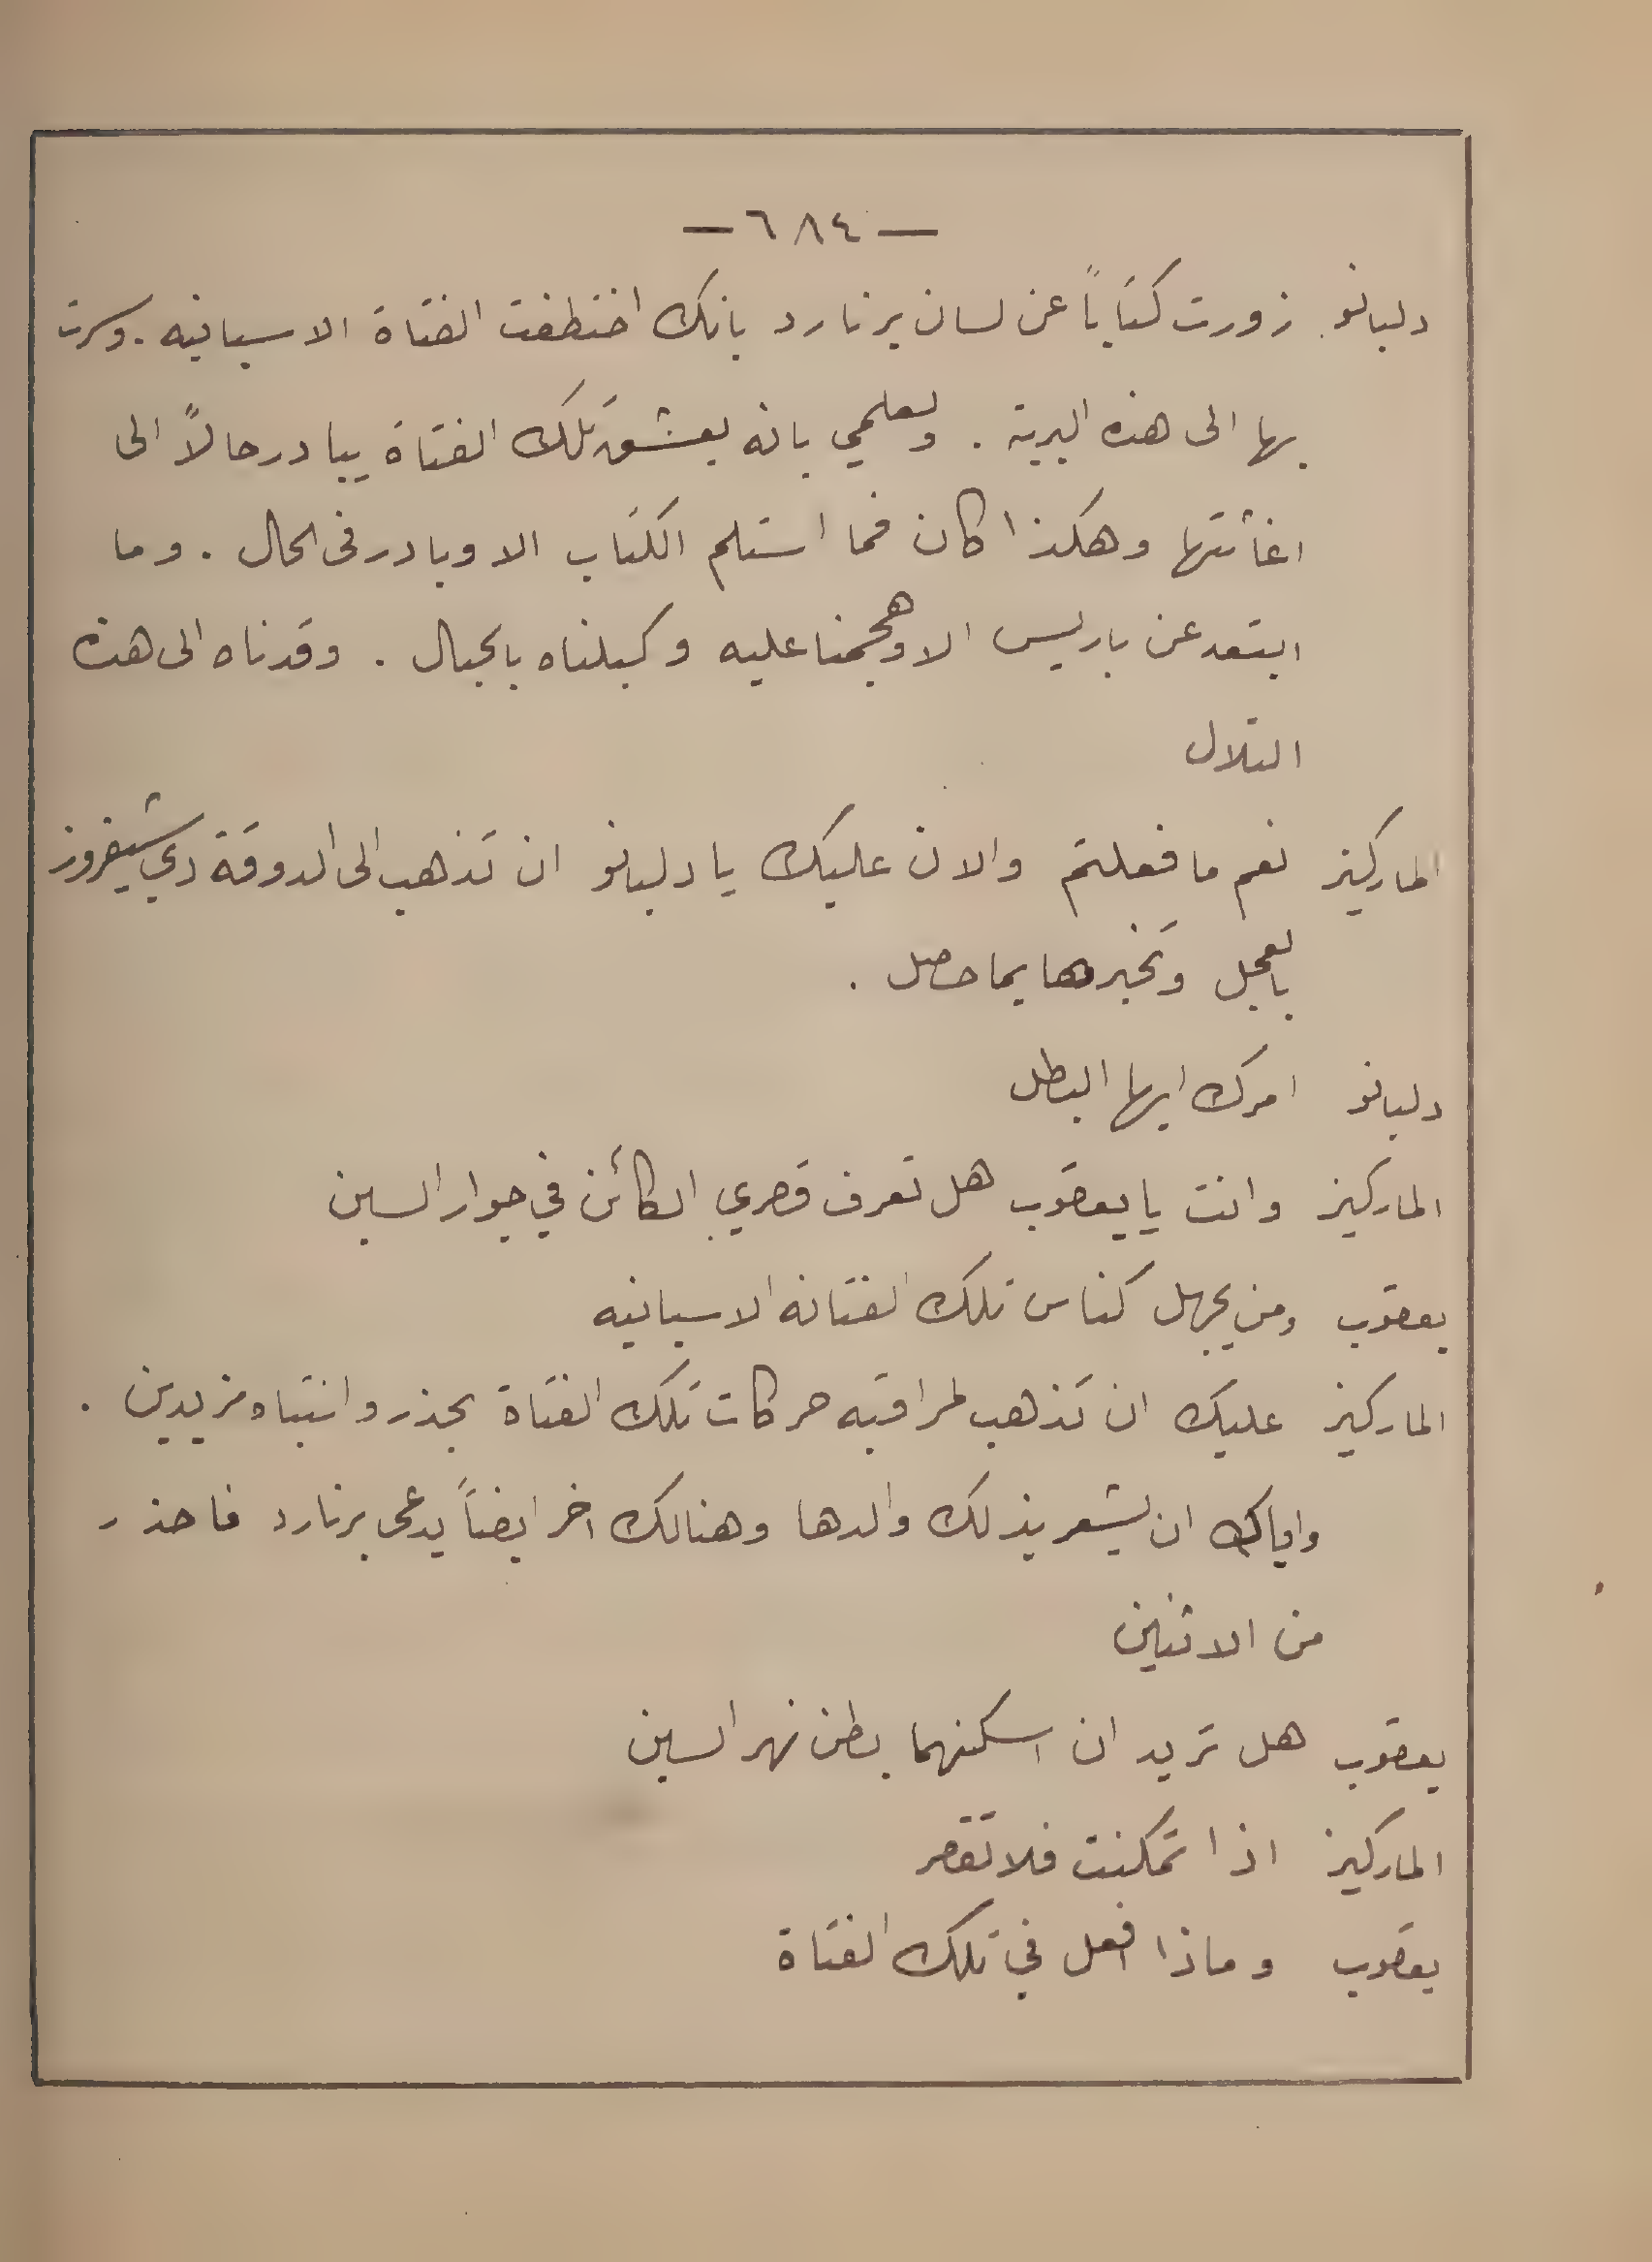 — ٦٨٤ —
دلبانو زورت كتاباً عن لسان برنارد بانك اختطفت الفتاة الاسبانيه . وسرت
بها الى هذه البرية . ولعلمي بانه يعشق تلك الفتاة يبادر حالاً الى
اغاثتها وهكذا كان فما استلم الكتاب الا وبادر في الحال . وما
ابتعد عن باريس الا وهجمنا عليه وكبلناه بالحبال . وقدناه الى هذه
التلال
الماركيز نعم ما فعلتم والان عليك يا دلبانو ان تذهب الى الدوقة دي شيفروز
بالعجل وتخبرها بما حصل .
دلبانو امرك ايها البطل
الماركيز وانت يا يعقوب هل تعرف قصري الكائن في جوار السين
يعقوب ومن يجهل كناس تلك الفتانه الاسبانيه
الماركيز عليك ان تذهب لمراقبه حركات تلك الفتاة بحذر وانتباه مزيدين .
واياك ان يشعر بذلك والدها وهنالك اخر ايضاً يدعى برنارد فاحذر
من الاثنين
يعقوب هل تريد ان اسكنهما بطن نهر السين
الماركيز اذا تمكنت فلا تقصر
يعقوب وماذا افعل في تلك الفتاة